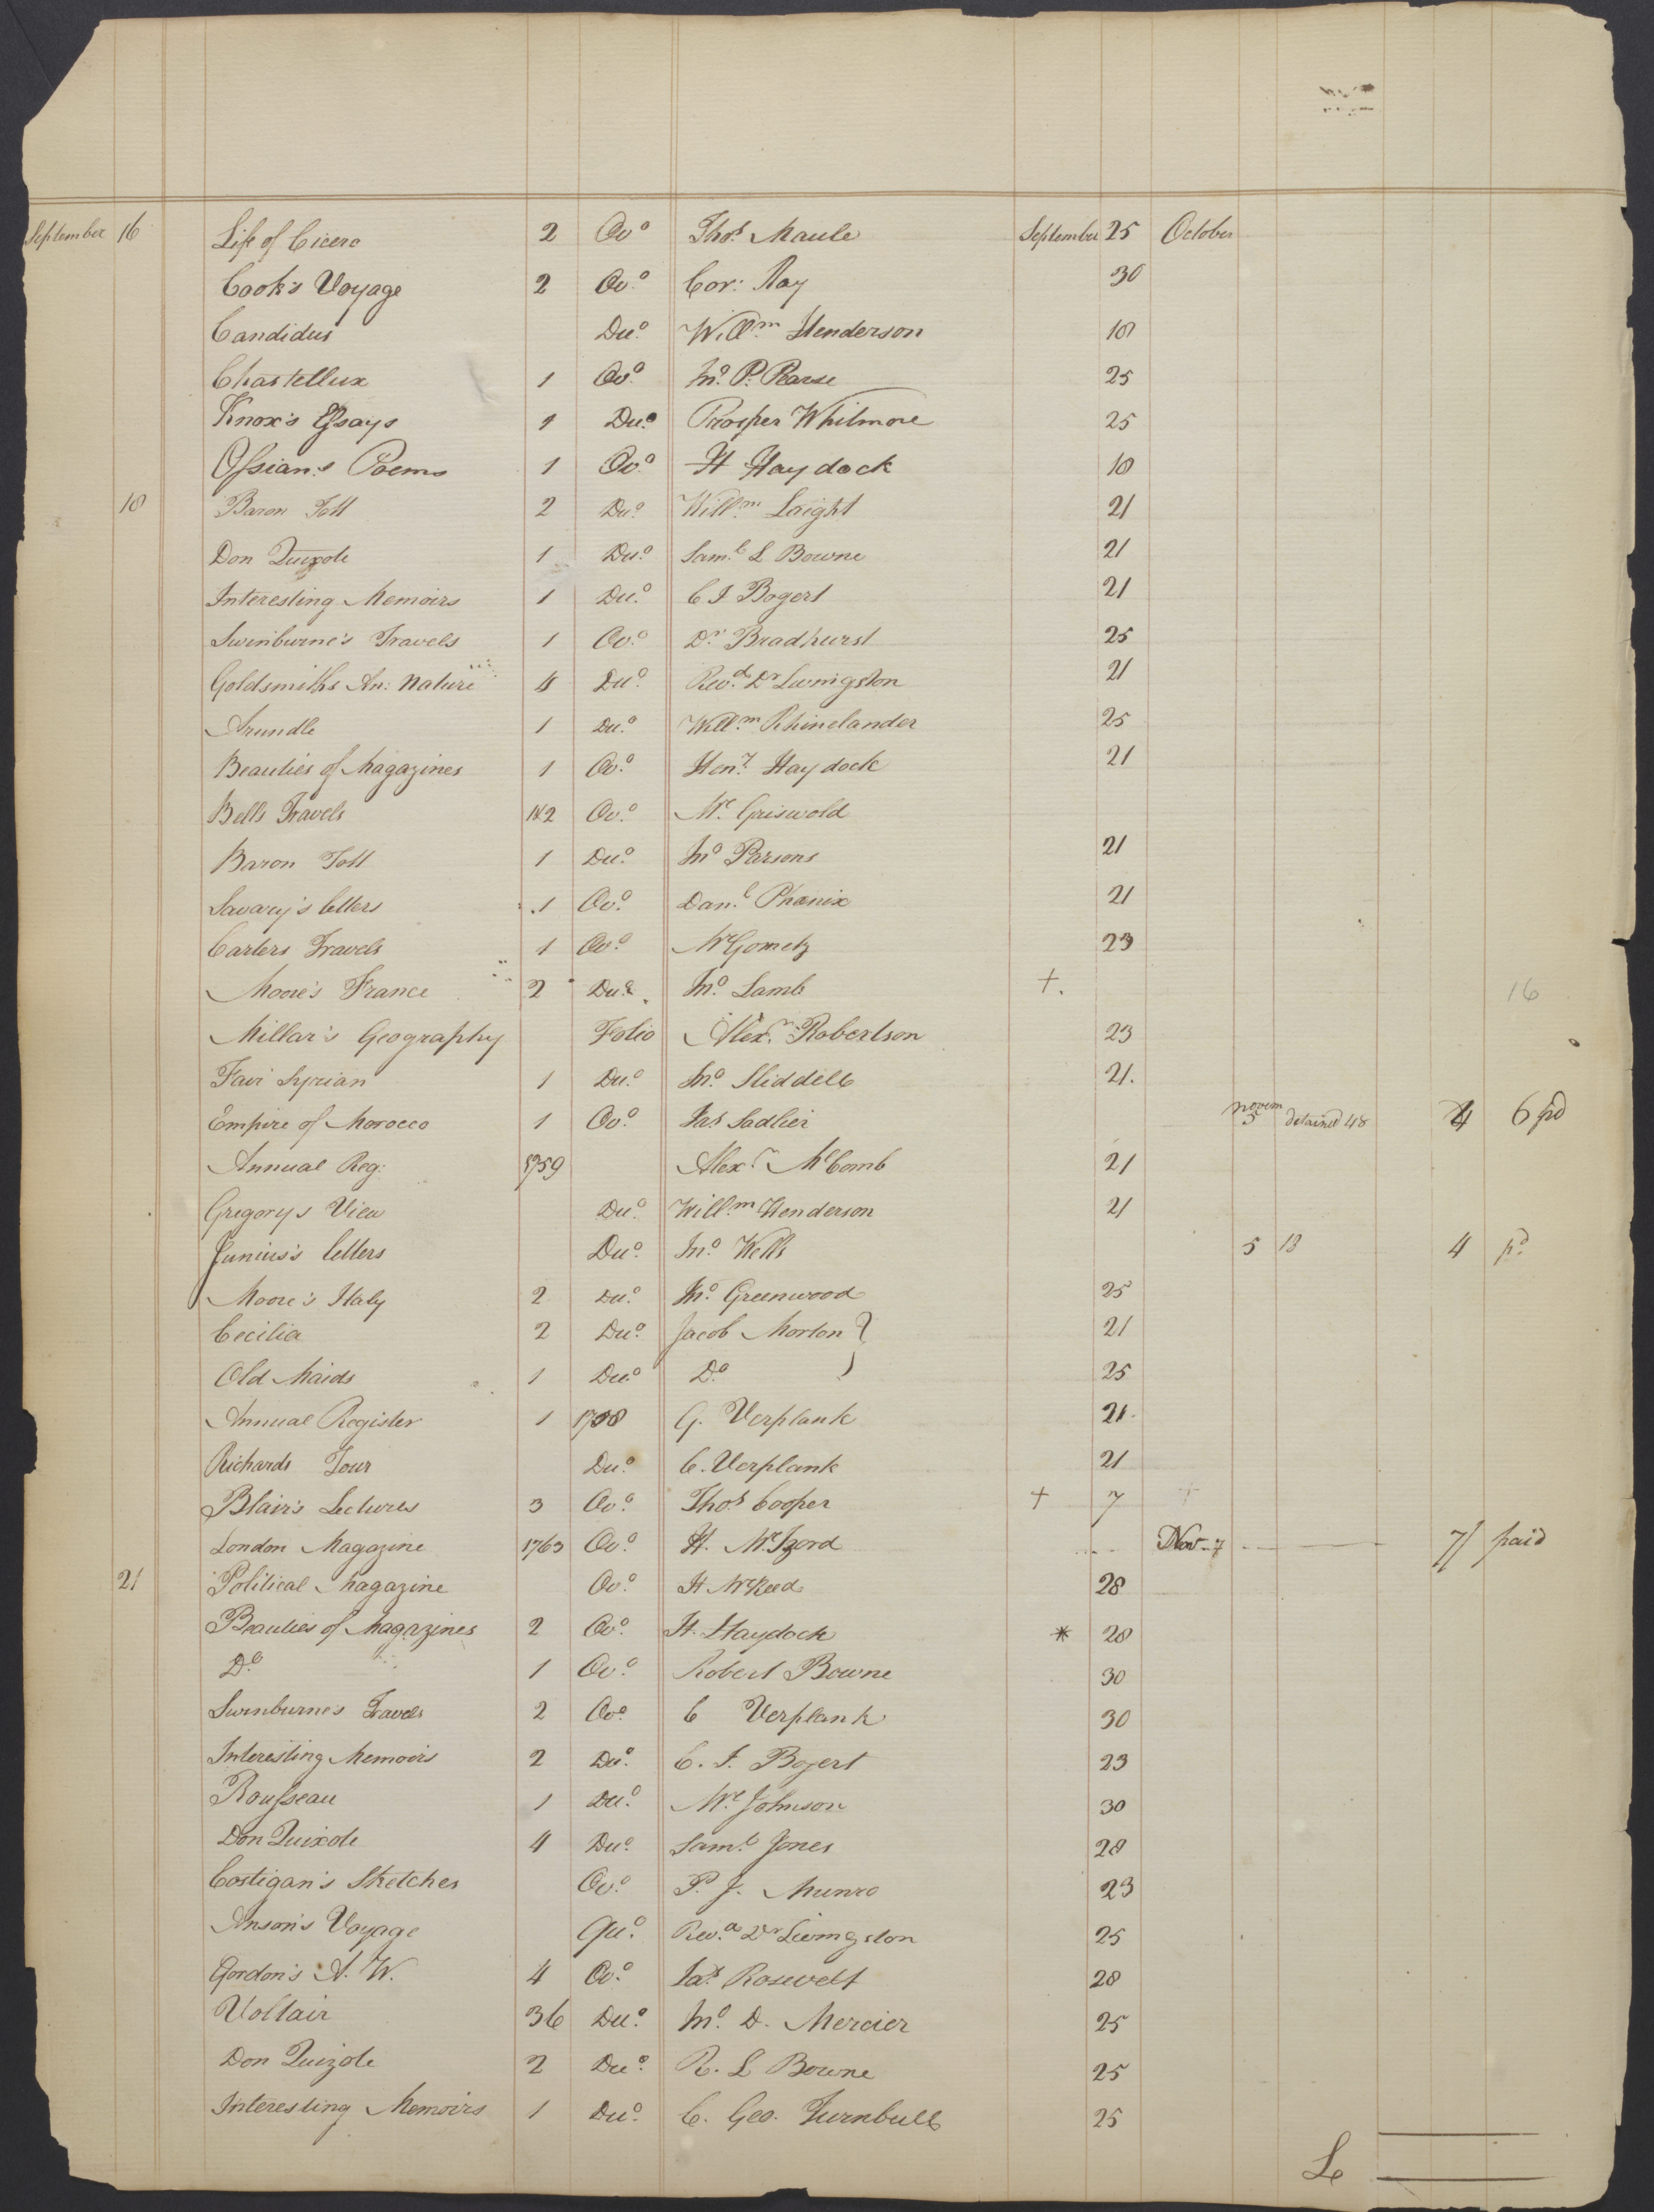 September 16 Life of Cicero 2 Ov.o Thos. Maule September 25 October
Cook's Voyage 2 Ov.o Cor: Ray 30
Candidus Du.o Will.m Henderson 18
Chastellux 1 Ov.o Jn.o P. Pearse 25
Knox's Essays 1 Du.o Prosper Whitmore 25
Ossian's Poems 1 Ov.o H Haydock 18
18 Baron Tott 2 Du.o Will.m Laight 21
Don Quixote 1 Du.o Sam.l L Bowne 21
Interesting Memoirs 1 Du.o C I Bogert 21
Swinburne's Travels 1 Ov.o Dr Bradhurst 25
Goldsmiths An: Nature 4 Du.o Rev.d Dr Livingston 21
Arundle 1 Du.o Will.m Rhinelander 25
Beauties of Magazines 1 Ov.o Hen.y Haydock 21
Bells Travels 1&2 Ov.o Mr. Griswold
Baron Tott 1 Du.o Jn.o Parsons 21
Savary's letters 1 Ov.o Dan.l Phœnix 21
Carters Travels 1 Ov.o Mr Gometz 23
Moore's France 2 Du.o Jn.o Lamb +. 16
Millar's Geography Folio Alex.r Robertson 23
Fair Syrian 1 Du.o Jn.o Sliddell 21.
Empire of Morocco 1 Ov.o Jas Sadlier novem 5 detained 48 4 6 pd
Annual Reg: 1759 Alex.r McComb 21
Gregorys View Du.o Will.m Henderson 21
Junius's letters Du.o Jn.o Wells 5 18 4 pd
Moore's Italy 2 Du.o Jn.o Greenwood 25
Cecilia 2 Du.o Jacob Morton } 21
Old Maids 1 Du.o D.o 25
Annual Register 1 1758 G. Verplank 21.
Richards Tour Du.o C. Verplank 21
Blair's Lectures 3 Ov.o Thos. Cooper + 7 +
London Magazine 1763 Ov.o H. Mc.Izord Nov- 7 7/ paid
21 Political Magazine Ov.o 28
Beauties of Magazines 2 Ov.o H. Haydock * 28
D.o 1 Ov.o Robert Bowne 30
Swinburne's Travels 2 Ov.o C Verplank 30
Interesting Memoirs 2 Du.o C. I. Bogert 23
Rousseau 1 Du.o Mr. Johnson 30
Don Quixote 4 Du.o Sam.l Jones 28
Costigan's Sketches Ov.o P. J. Munro 23
Anson's Voyage Qu.o Rev.d Dr Livingston 25
Gordon's A. W. 4 Ov.o Jas. Rosevelt 28
Voltair 36 Du.o Jn.o D. Mercier 25
Don Quixote 2 Du.o R. L Bowne 25
Interesting Memoirs 1 Du.o C. Geo. Turnbull 25
£